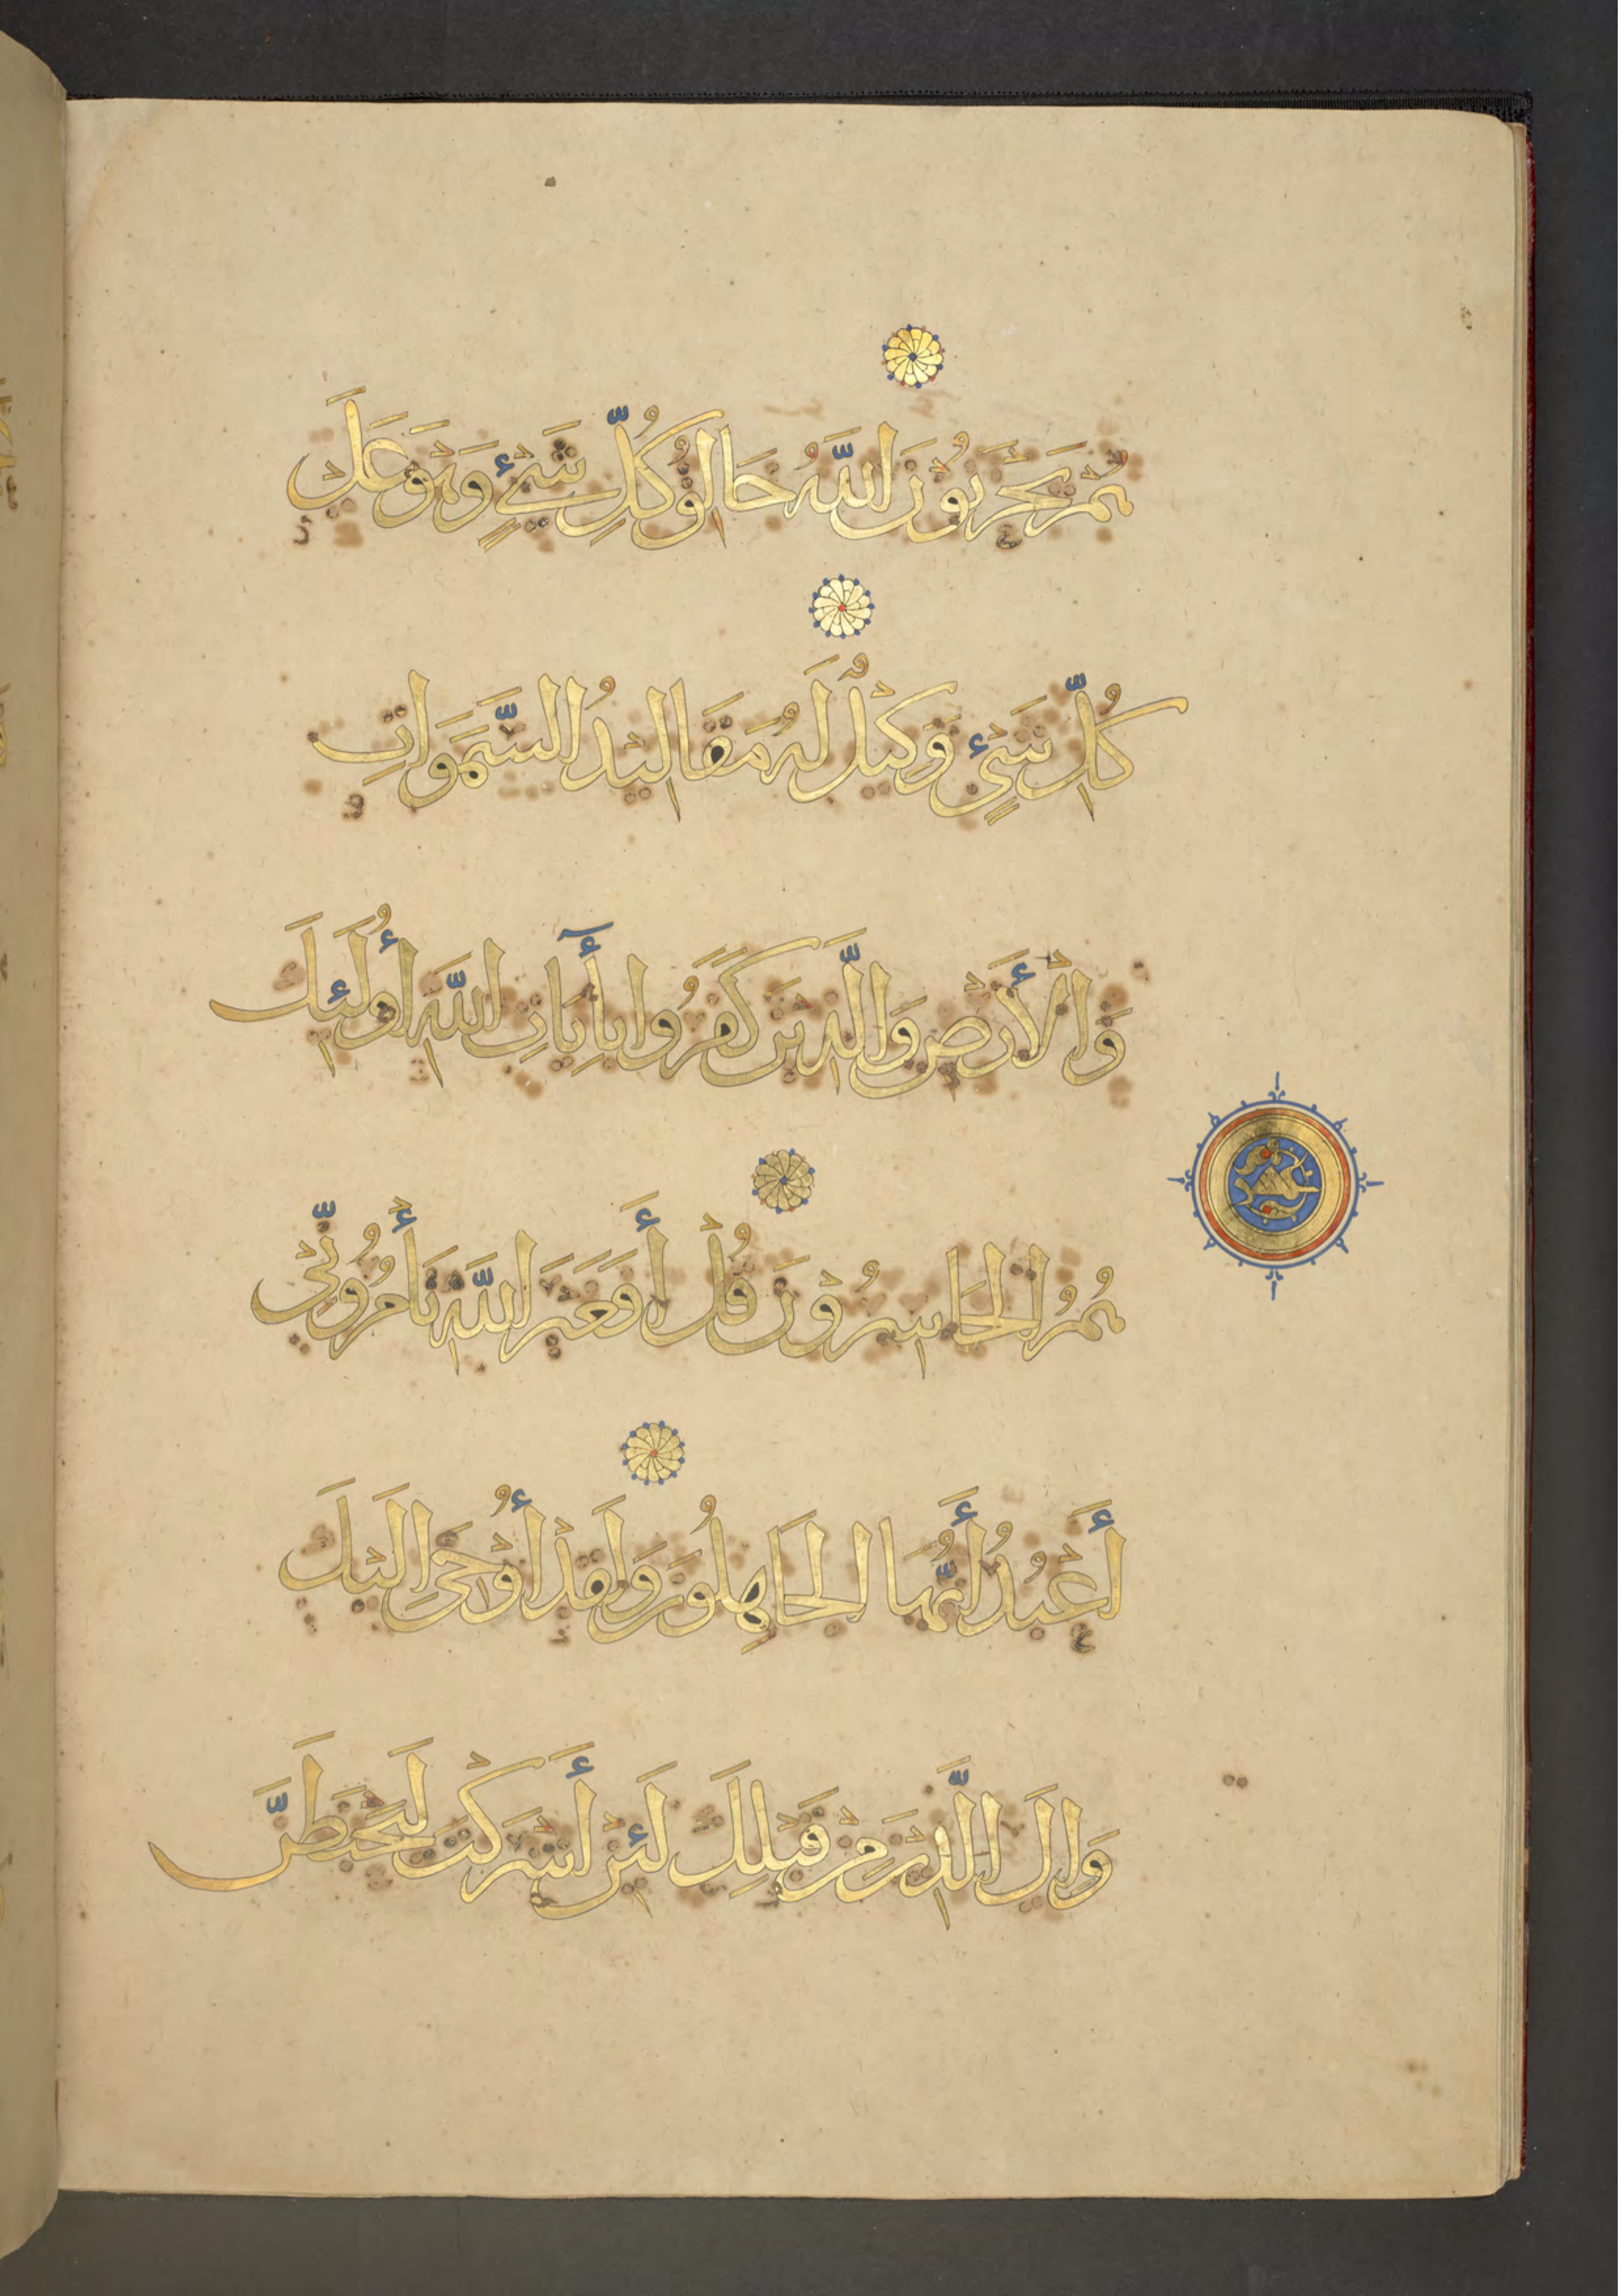 هُمْ يَحْزَنُونَ اللَّهُ خَالِقُ كُلِّ شَيْءٍ وَهُوَ عَلَى
كُلِّ شَيْءٍ وَكِيلٌ لَهُ مَقَالِيدُ السَّمَوَاتِ
وَالْأَرْضِ وَالَّذِينَ كَفَرُوا بِآيَاتِ اللَّهِ أُولَئِكَ
هُمُ الْخَاسِرُونَ قُلْ أَفَغَيْرَ اللَّهِ تَأْمُرُونِّي
أَعْبُدُ أَيُّهَا الْجَاهِلُونَ وَلَقَدْ أُوحِيَ إِلَيْكَ
وَإِلَى الَّذِينَ مِنْ قَبْلِكَ لَئِنْ أَشْرَكْتَ لَيَحْبَطَنَّ
عشر